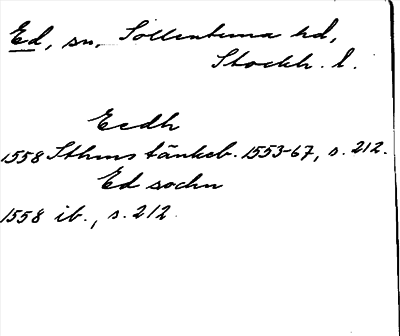 Ed, sn, Sollentuna hd,
Stockh. l.
Eedh
1558 Sthms tänkeb. 1553-67, s. 212.
Ed sochn
1558 ib., s. 212.